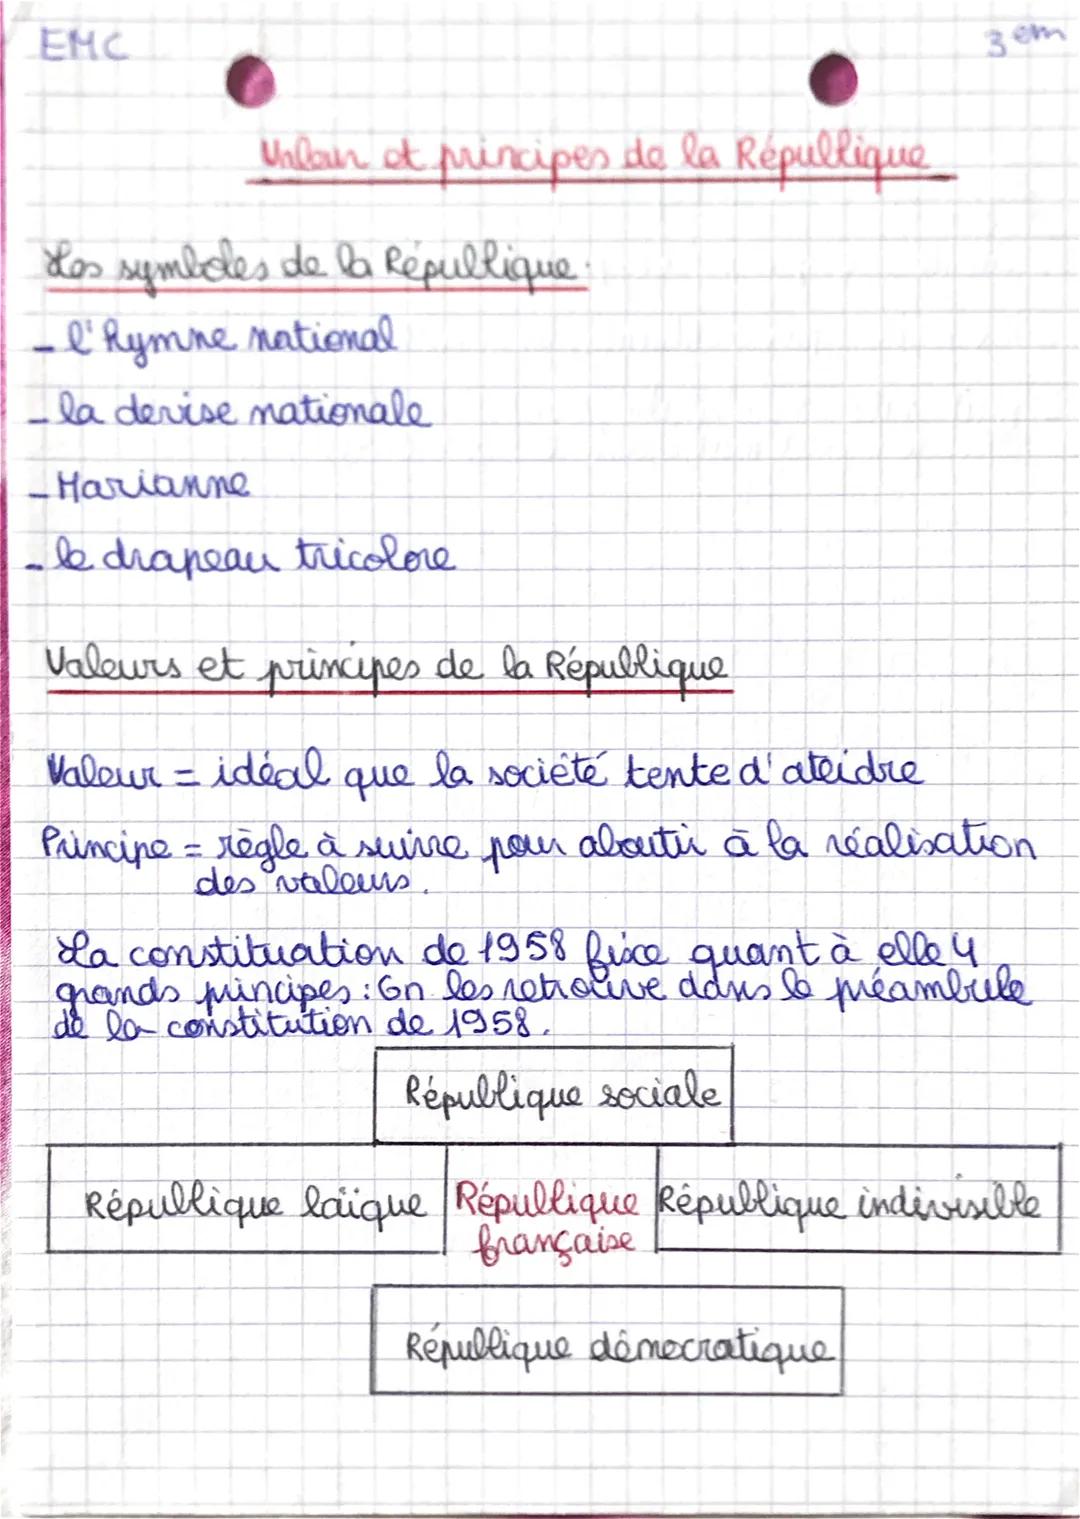 EMC
3 em
Valeur et principes de la République
Les symboles de la République.
- l'hymne national
- la devise nationale
- Marianne
- le drapeau tricolore
Valeurs et principes de la République
Valeur = idéal que la société tente d'ateidre
Principe = règle à suivre pour aboutir à la réalisation
des valeurs.
La constituation de 1958 fixe quant à elle 4
grands principes : On les retrouve dans le préambule
de la constitution de 1958.
République sociale
République laïque République République indivisible
française
République démocratique